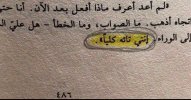 فلم أعد أعرف ماذا أفعل بعد الآن. أنا حتى
تجاه أذهب. ما الصواب، وما الخطأ - هل عليّ
إلى الوراء إنني تائه كلياً».
٤٨٦